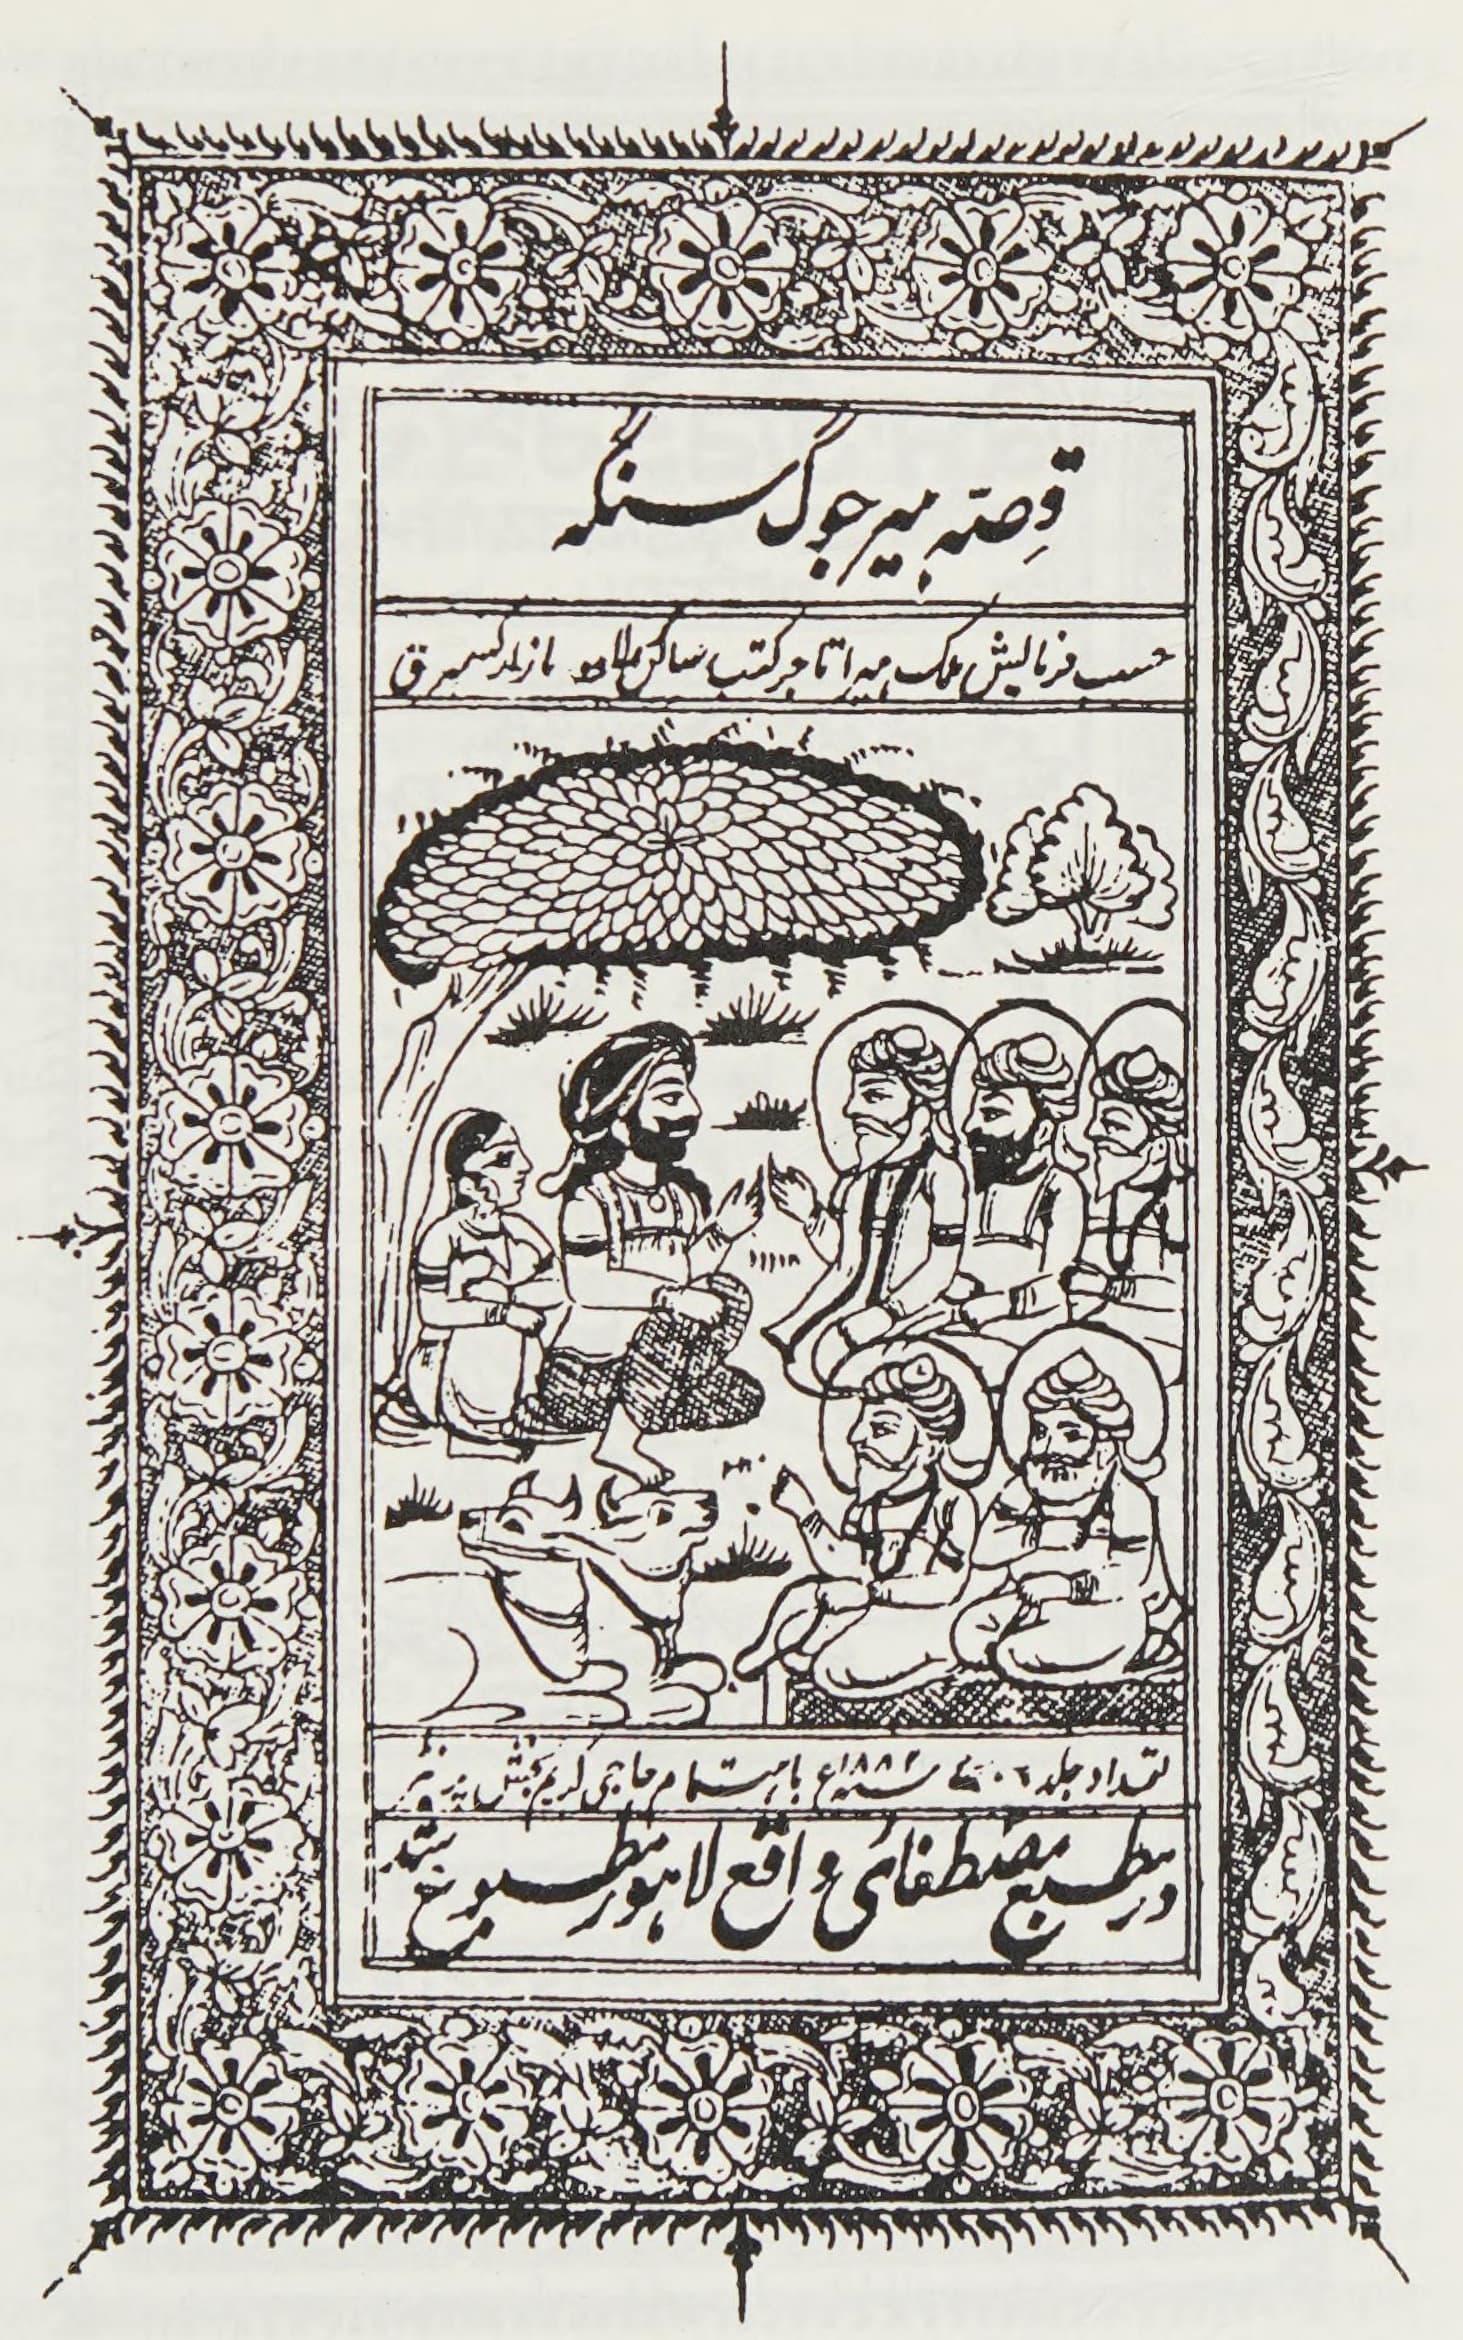 قِصّہ ہیر جوگ سنگہ
حسب فرمایش ملک ہیرا تاجر کتب ساکن لاہور بازار کسیرہ
تعداد جلد سنہ ۱۸۸۲ع باہتمام حاجی کریم بخش
در مطبع مصطفائی واقع لاہور مطبوع شد